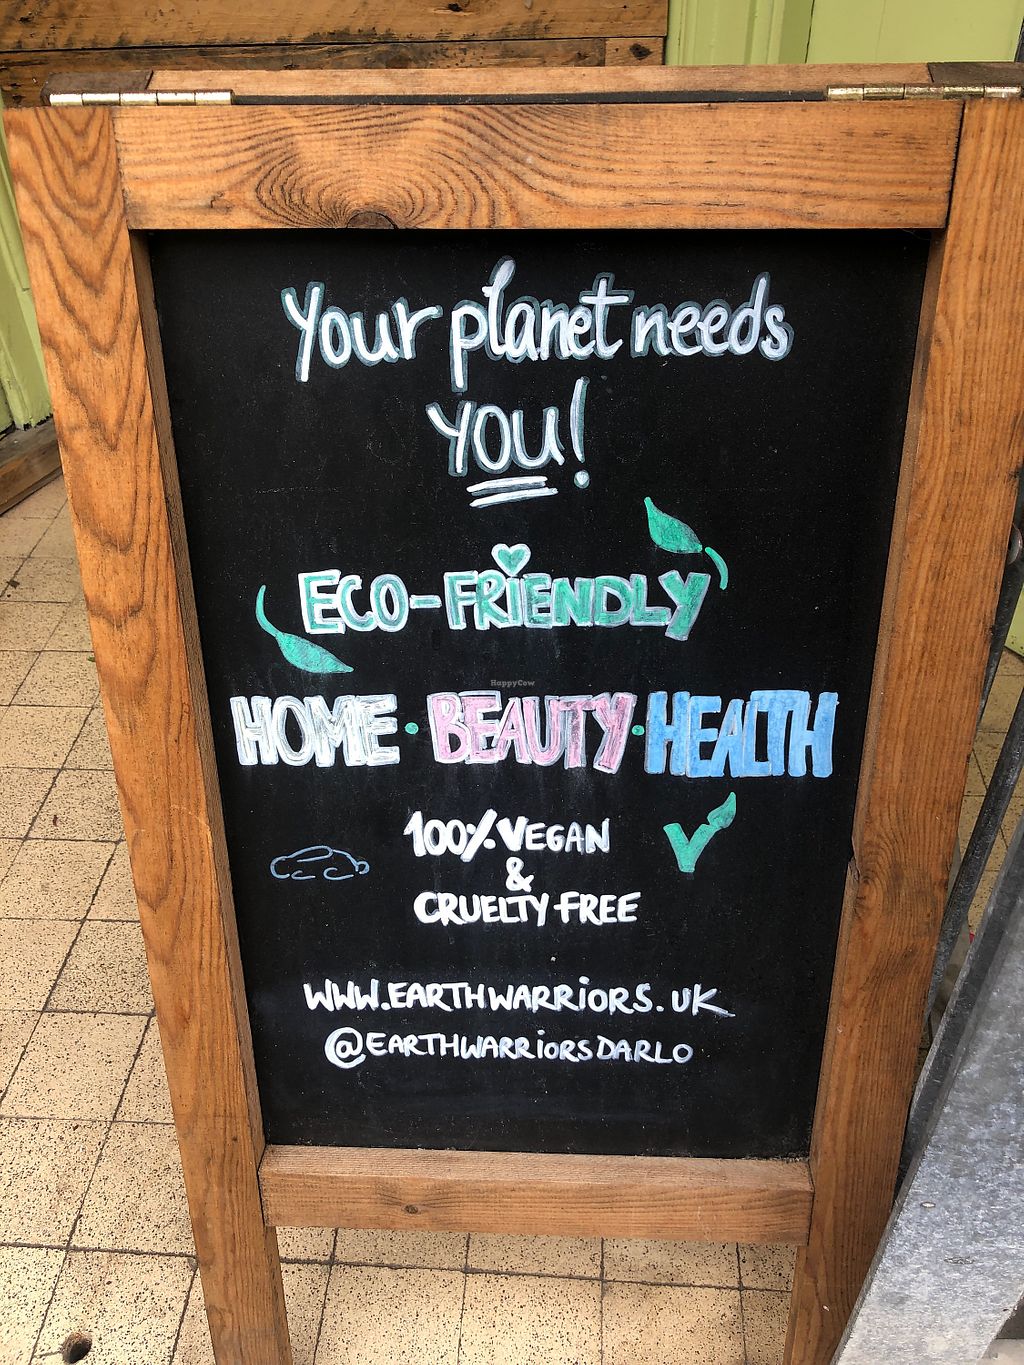 Your planet needs
YOU!
ECO-FRiENDLY
HappyCow
HOME · BEAUTY · HEALTH
100% VEGAN
&
CRUELTY FREE
WWW.EARTHWARRiORS.UK
@EARTHWARRiORSDARLO